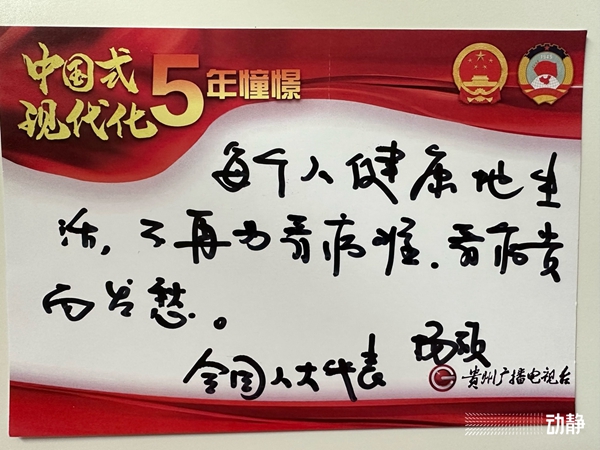 中国式
现代化
5年憧憬
每个人健康地生
活，不再为看病难、看病贵
而发愁。
全国人大代表 杨硕
贵州广播电视台
动静